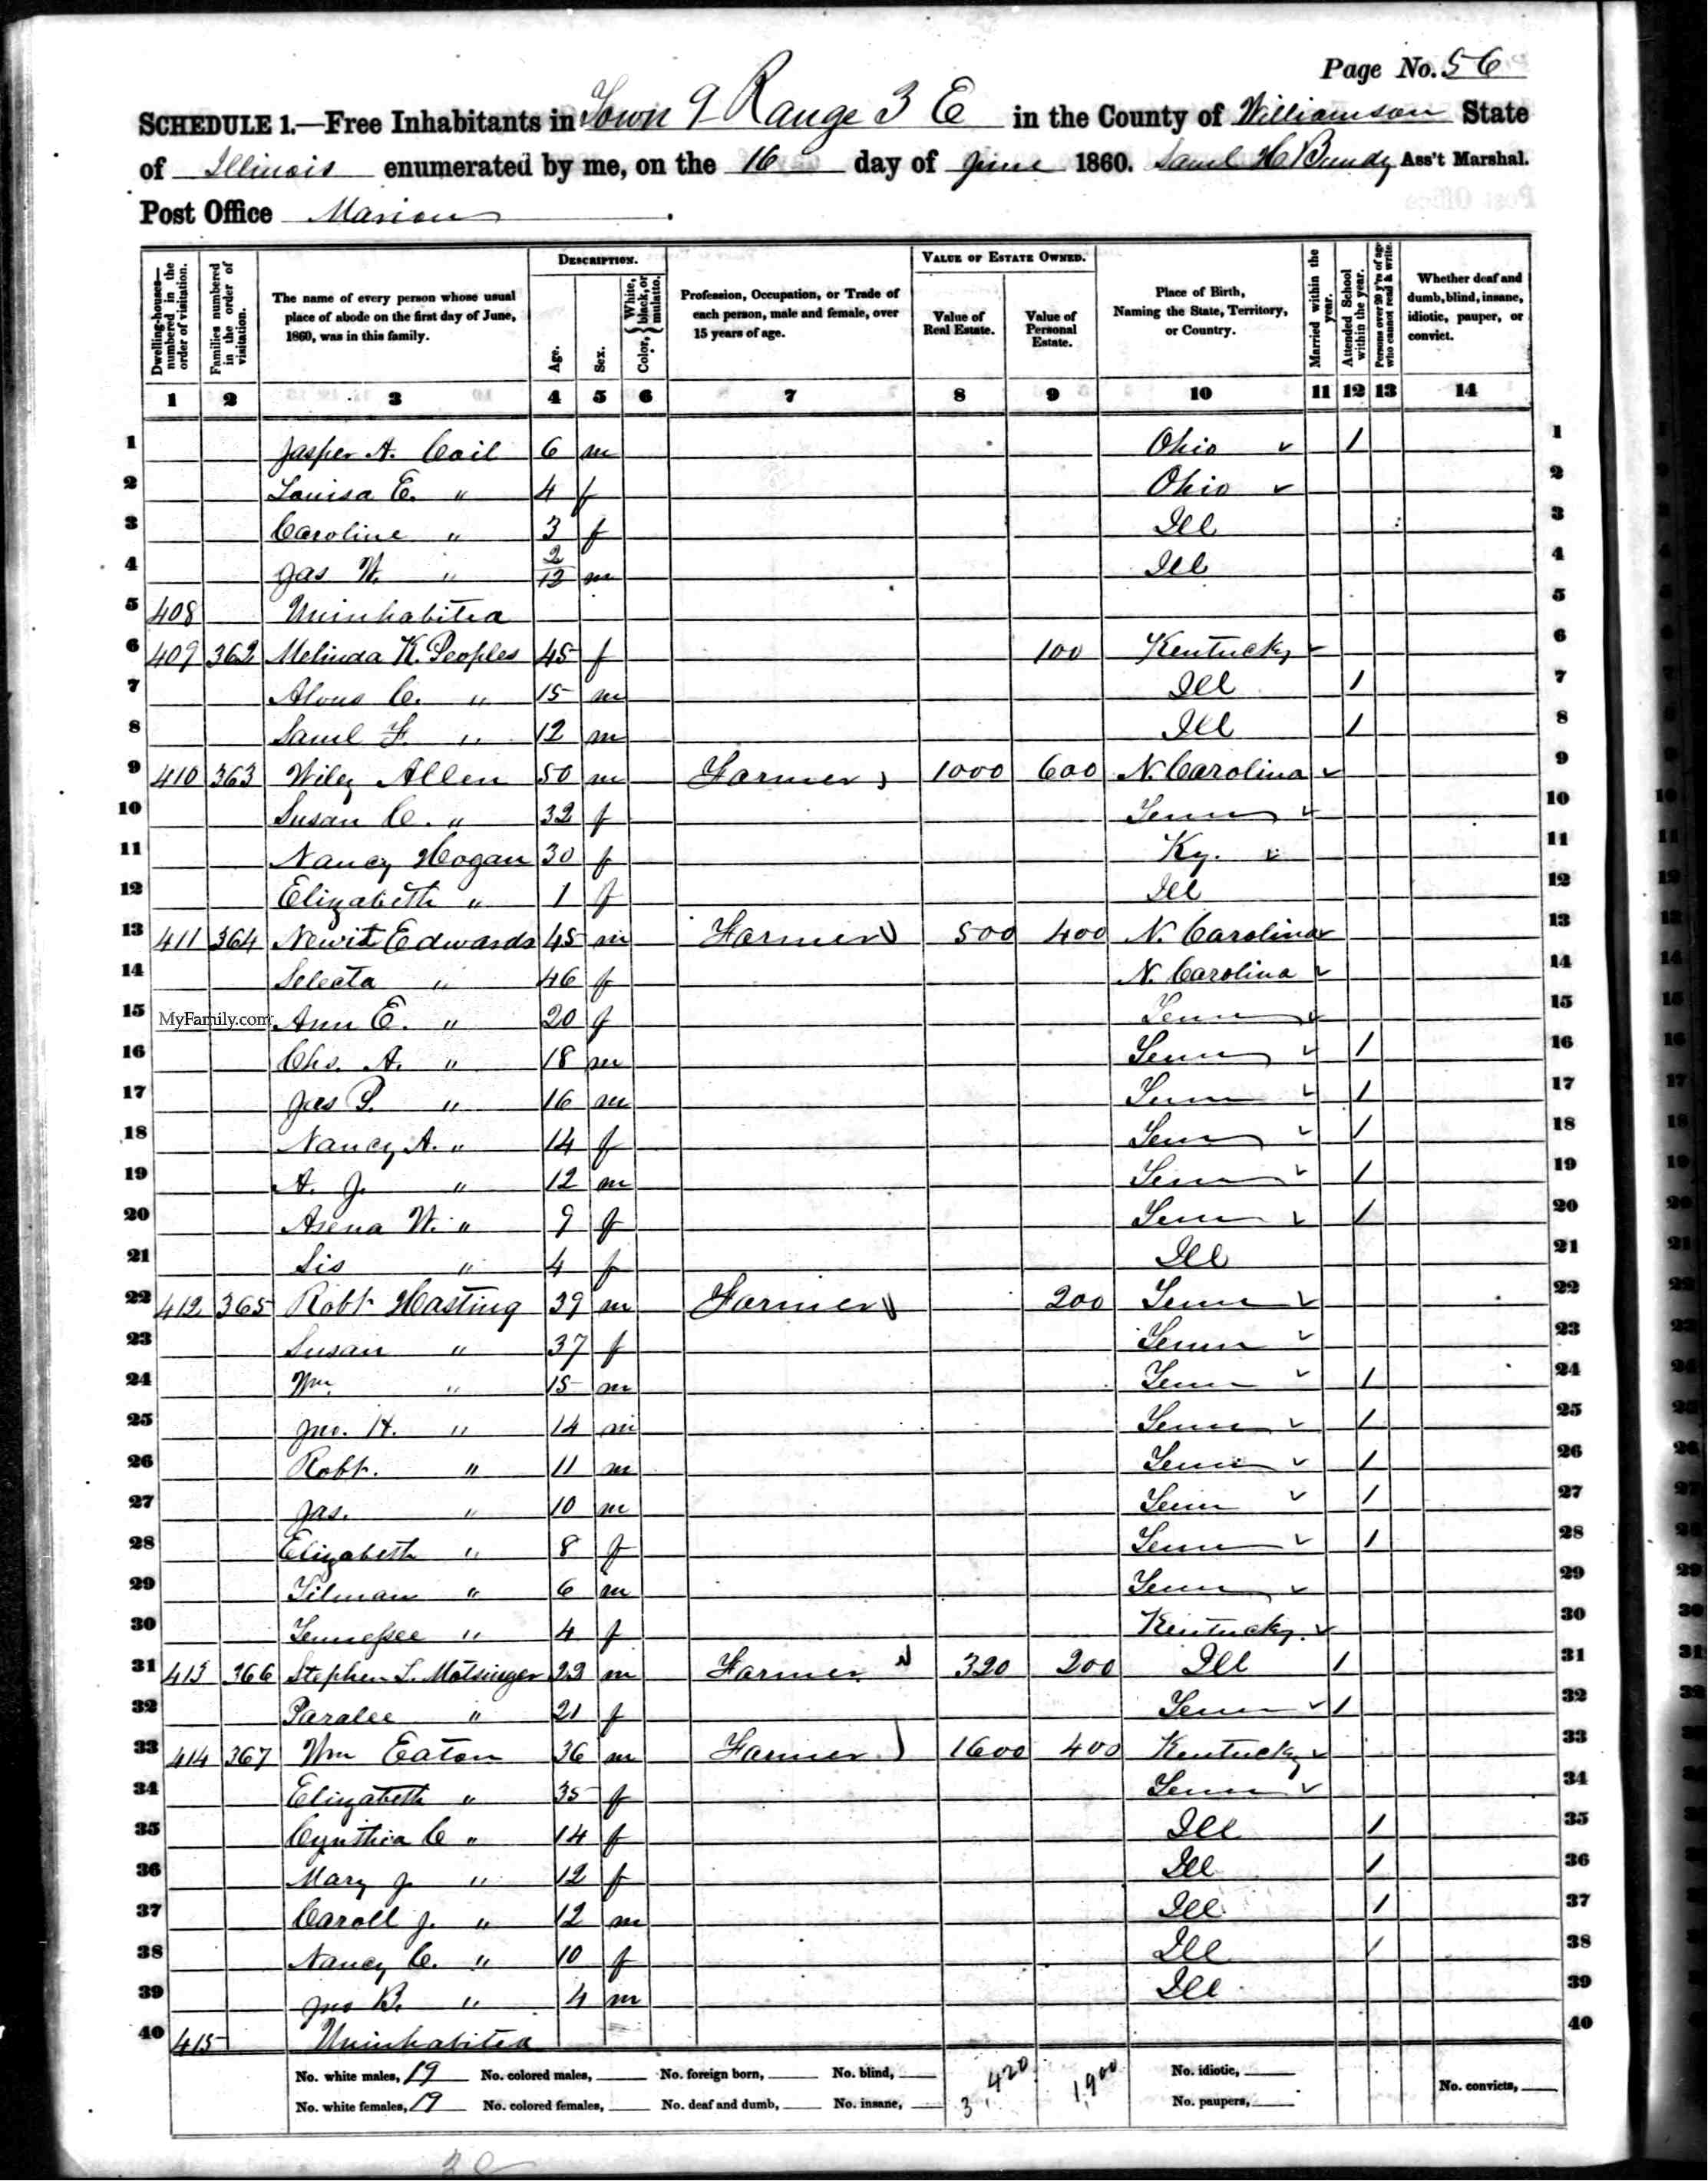 Page No. 56
SCHEDULE 1.—Free Inhabitants in Town 9 Range 3 E in the County of Williamson State
of Illinois enumerated by me, on the 16 day of June 1860. Saml H Bundy Ass't Marshal.
Post Office Marion
DESCRIPTION. VALUE OF ESTATE OWNED.
Dwelling-houses—numbered in the order of visitation. Families numbered in the order of visitation. The name of every person whose usual place of abode on the first day of June, 1860, was in this family. Age. Sex. Color, {White, black, or mulatto. Profession, Occupation, or Trade of each person, male and female, over 15 years of age. Value of Real Estate. Value of Personal Estate. Place of Birth, Naming the State, Territory, or Country. Married within the year. Attended School within the year. Persons over 20 y'rs of age who cannot read & write. Whether deaf and dumb, blind, insane, idiotic, pauper, or convict.
1 2 3 4 5 6 7 8 9 10 11 12 13 14
1 Jasper A. Coil 6 m Ohio ✓ / 1
2 Louisa E. " 4 f Ohio ✓ 2
3 Caroline " 3 f Ill 3
4 Jas W. " 2/12 m Ill 4
5 408 Uninhabited 5
6 409 362 Melinda K. Peoples 45 f 100 Kentucky ✓ 6
7 C. " 15 m Ill / 7
8 Saml F. " 12 m Ill / 8
9 410 363 Wiley Allen 50 m Farmer 1000 600 N. Carolina ✓ 9
10 Susan C. " 32 f Tenn ✓ 10
11 Nancy Hogan 30 f Ky. ✓ 11
12 Elizabeth " 1 f Ill 12
13 411 364 Newit Edwards 45 m Farmer 500 400 N. Carolina ✓ 13
14 Selecta " 46 f N. Carolina ✓ 14
15 MyFamily.com Ann E. " 20 f Tenn ✓ 15
16 Chs. A. " 18 m Tenn ✓ / 16
17 Jas P. " 16 m Tenn ✓ / 17
18 Nancy A. " 14 f Tenn ✓ / 18
19 A. J. " 12 m Tenn ✓ / 19
20 Asena W. " 9 f Tenn ✓ / 20
21 Sis " 4 f Ill 21
22 412 365 Robt Hasting 39 m Farmer 200 Tenn ✓ 22
23 Susan " 37 f Tenn ✓ 23
24 Wm " 15 m Tenn ✓ / 24
25 Jno. H. " 14 m Tenn ✓ / 25
26 Robt. " 11 m Tenn ✓ / 26
27 Jas. " 10 m Tenn ✓ / 27
28 Elizabeth " 8 f Tenn ✓ / 28
29 Tilman " 6 m Tenn ✓ 29
30 Tennessee " 4 f Kentucky. ✓ 30
31 413 366 Stephen L. Motsinger 22 m Farmer 320 200 Ill / 31
32 Paralee " 21 f Tenn ✓ / 32
33 414 367 Wm Eaton 36 m Farmer 1600 400 Kentucky ✓ 33
34 Elizabeth " 35 f Tenn ✓ 34
35 Cynthia C " 14 f Ill / 35
36 Mary J " 12 f Ill / 36
37 Caroll J. " 12 m Ill / 37
38 Nancy C. " 10 f Ill / 38
39 Jno B. " 4 m Ill 39
40 415 Uninhabited 40
No. white males, 19 No. colored males, No. foreign born, No. blind, 3,420 1,900 No. idiotic, No. convicts,
No. white females, 19 No. colored females, No. deaf and dumb, No. insane, No. paupers,